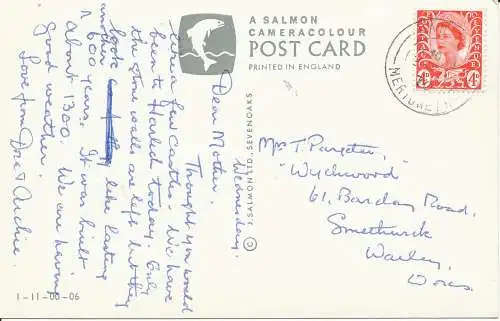 A SALMON
CAMERACOLOUR
POST CARD
PRINTED IN ENGLAND
© J. SALMON LTD., SEVENOAKS
1-11-00-06
4D
4D
Wednesday.
Dear Mother,
Thought you would
like a few castles. We have
been to Harlech today. Only
the stone walls are left but they
look like lasting
another 600 years. It was built
about 1300. We are having
good weather.
Love from Do & Archie.
Mrs T. Pargeter,
"Wychwood"
61, Barclay Road,
Smethwick
Warley,
Worcs.